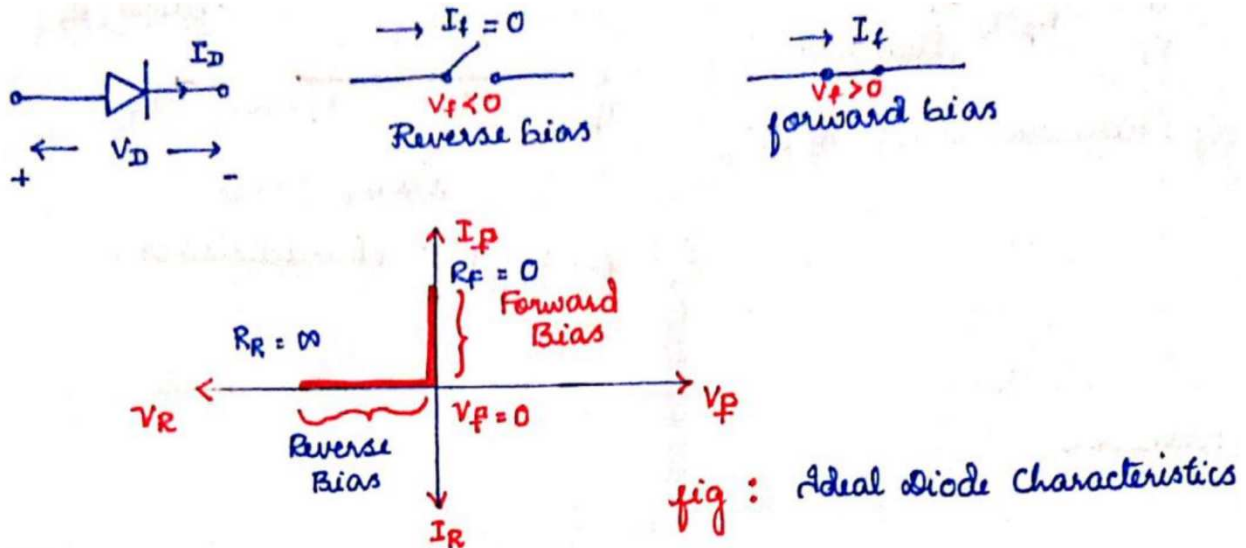 I_D
V_D
+ -
I_f = 0
V_f < 0
Reverse bias
I_f
V_f > 0
forward bias
I_f
R_F = 0
Forward
Bias
R_R = ∞
V_R
V_f = 0
V_f
Reverse
Bias
I_R
fig : Ideal Diode Characteristics